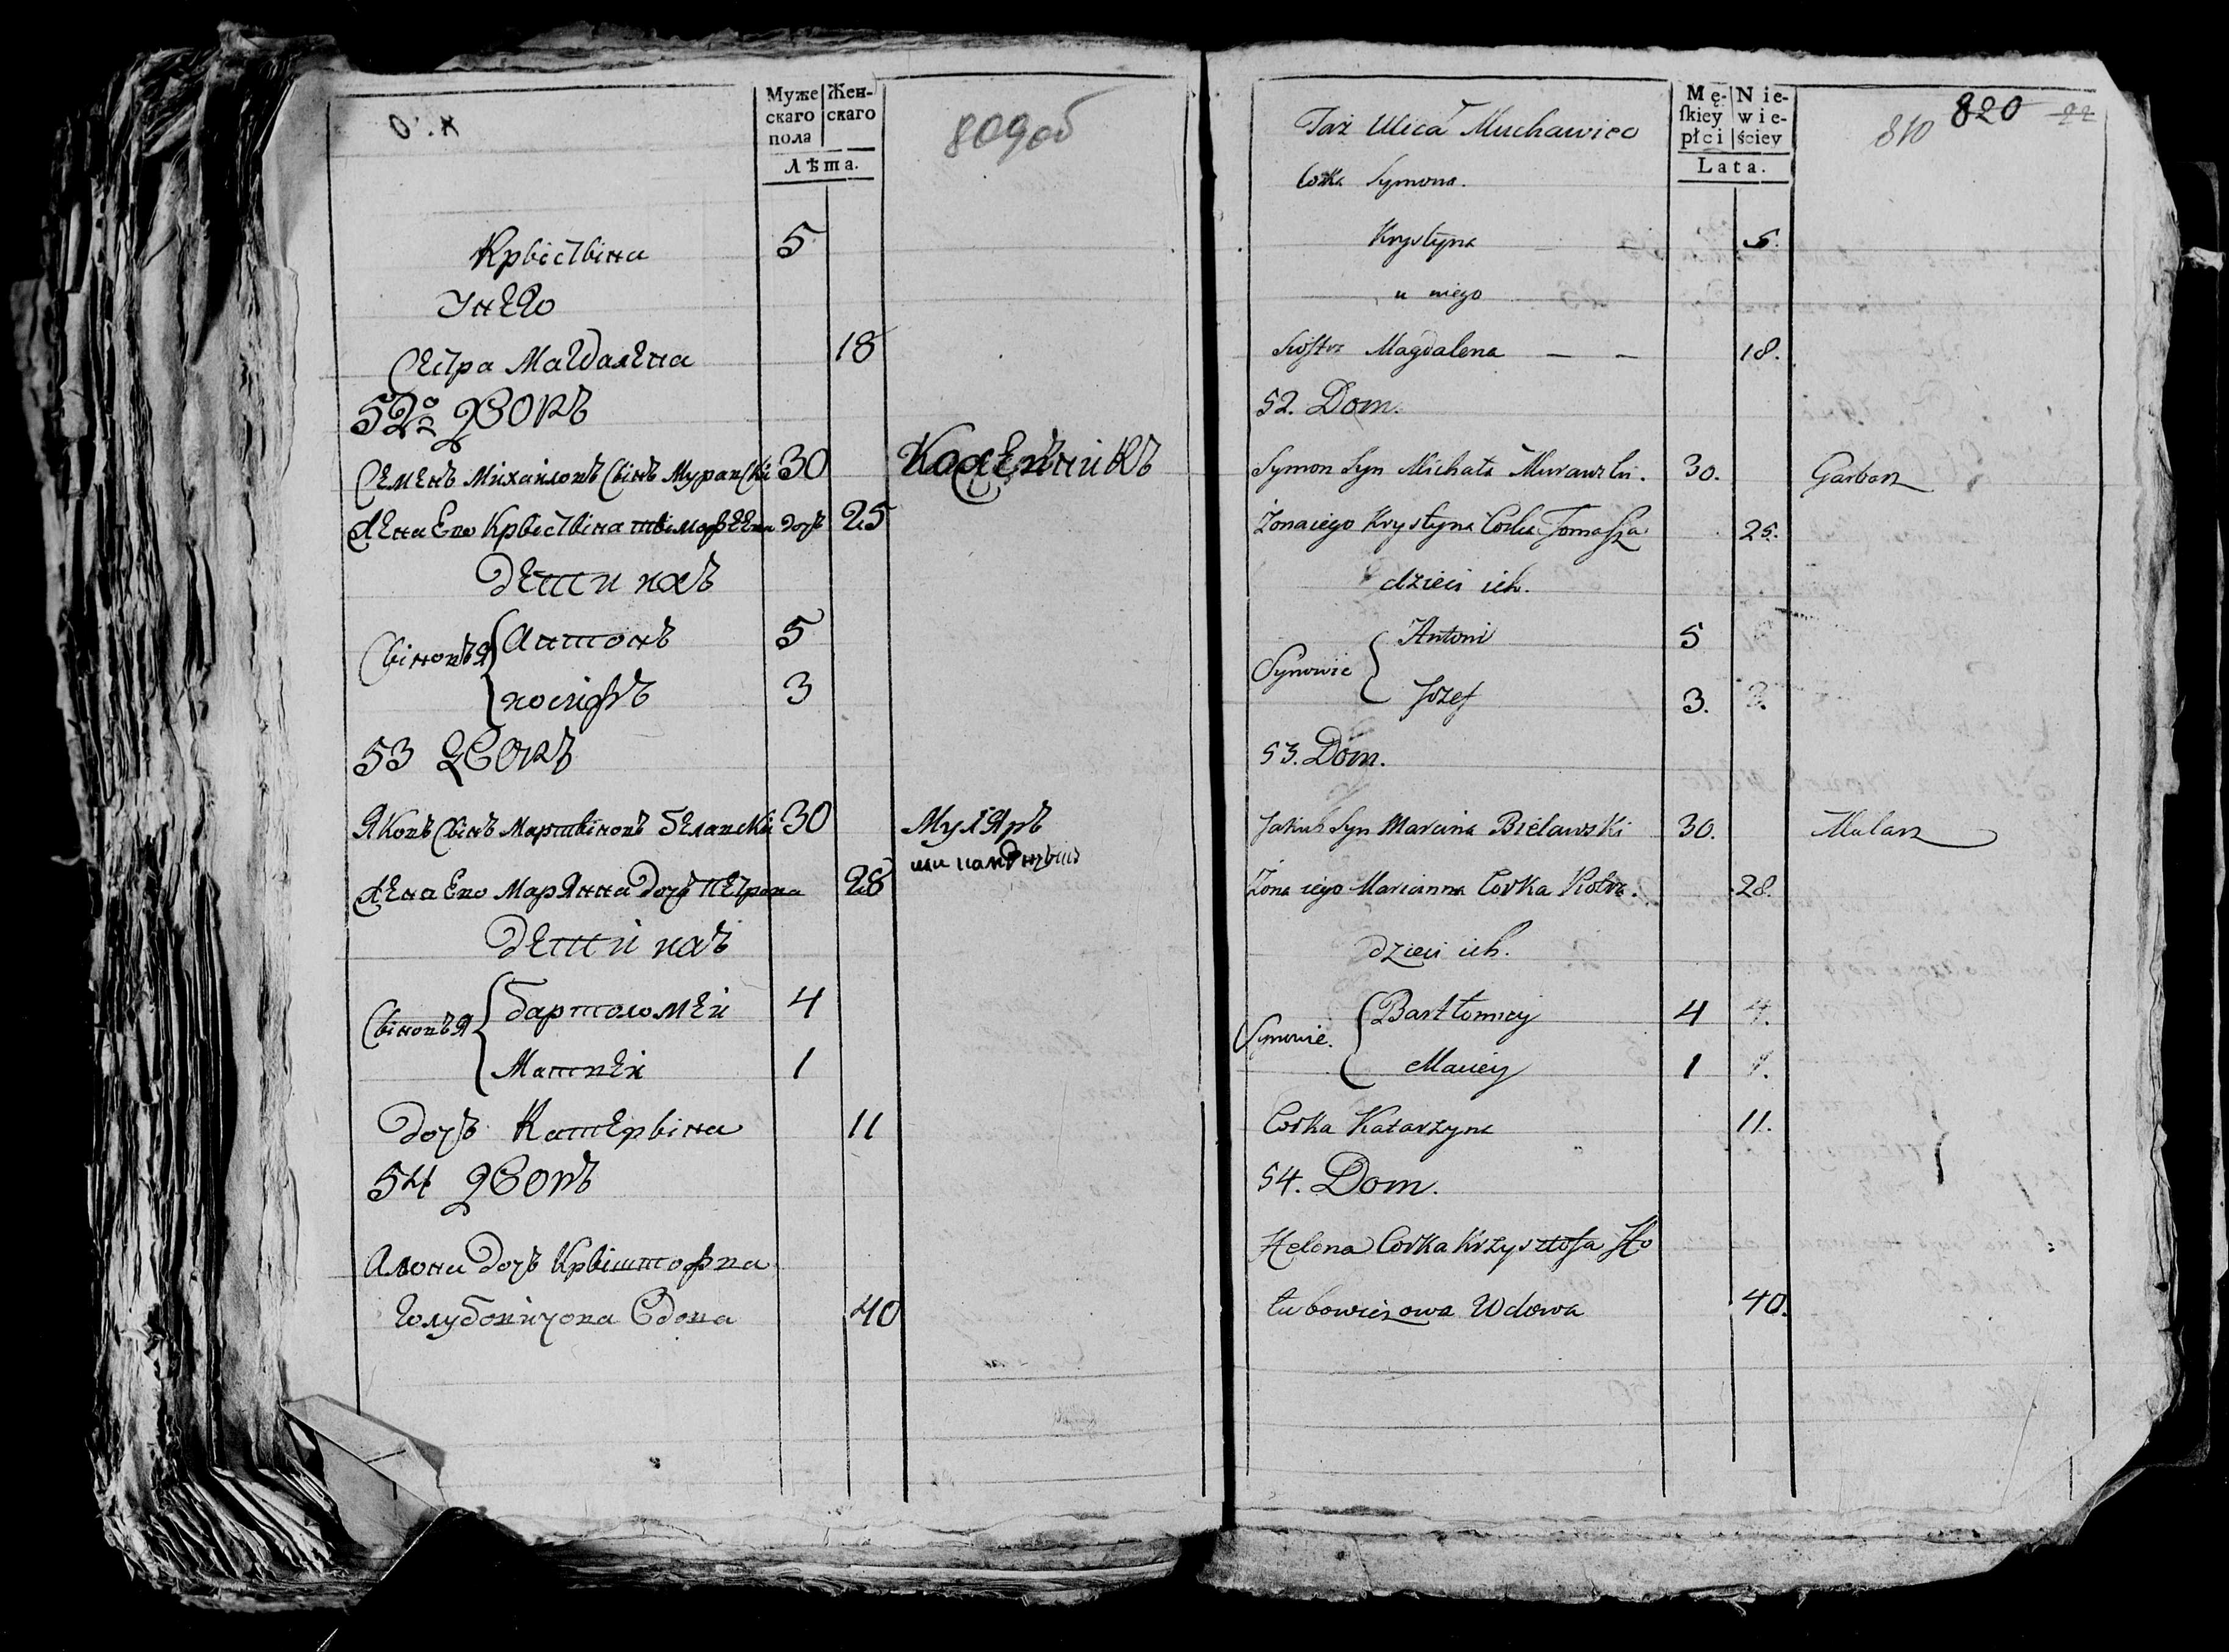 Муже
скаго
пола
Жен-
скаго
Лѣта.
809 об
Крвіствіна 5
Сестра Магдалена 18
52 Дворъ
Семенъ Михаиловъ Свінъ Муравскі 30 Кожевникъ
Жена Его Крвіствіна дочъ 25
дети ихъ
Свіновъя { Антонъ 5
иосифъ 3
53 Дворъ
Яковъ Свінъ Мартвіновъ белавскі 30 Муляръ
Жена Его Марянна дочъ Петрова 28
дети ихъ
Свіновъя { бартоломей 4
Матвей 1
дочъ Катервіна 11
54 Дворъ
Алона дочъ Крвіштофва
Голубовичова Вдова 40
Mę-
skiey
płci
Nie-
wie-
ściey
Lata.
810 820 22
Taż Ulica Muchawiec
Corka Symona.
Krystyna 5.
u niego
Siostra Magdalena 18.
52. Dom.
Symon Syn Michała Murawski. 30. Garbarz
Żona iego Krystyna Corka Tomasza 25.
dzieci ich.
Synowie { Antoni 5
Jozef 3. 3.
53. Dom.
Jakub Syn Marcina Bielawski 30. Mularz
Żona iego Marianna Corka Piotra. 28.
dzieci ich.
Synowie. { Bartłomiey 4 4.
Maciey 1 1.
Corka Katarzyna 11.
54. Dom.
Helena Corka Krzysztofa Ho
łubowiczowa Wdowa 40.